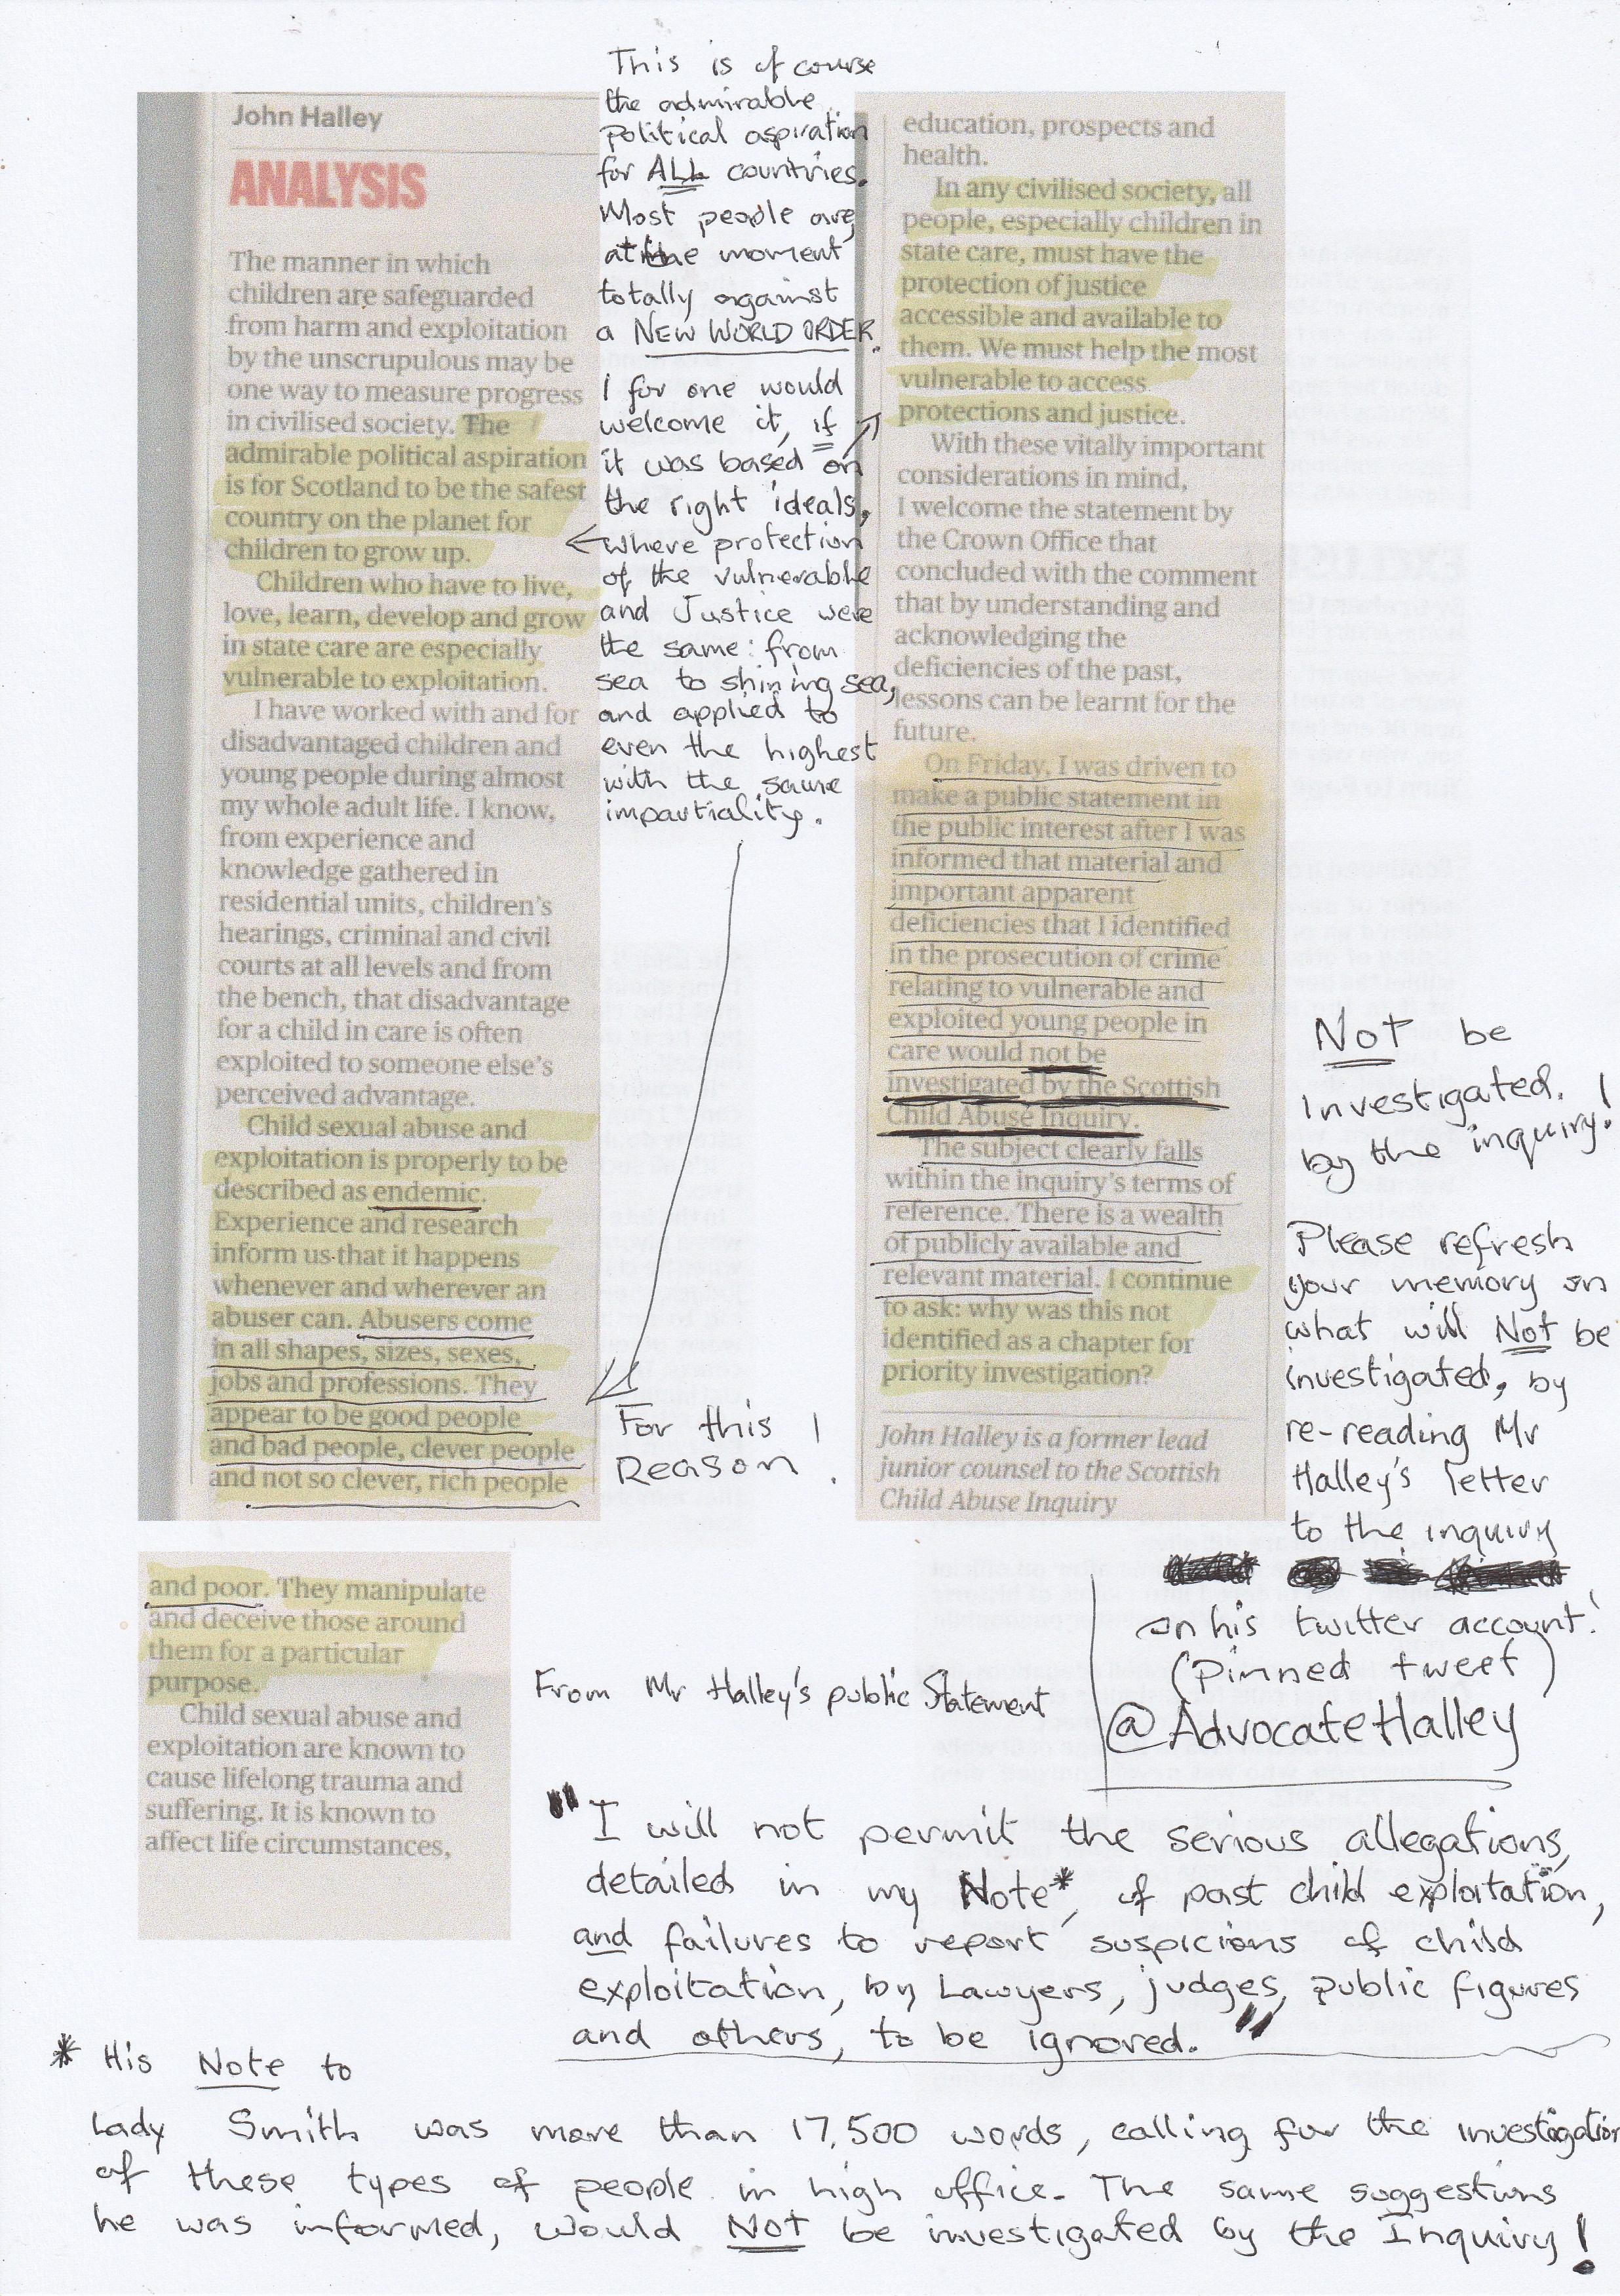 John Halley
ANALYSIS
The manner in which
children are safeguarded
from harm and exploitation
by the unscrupulous may be
one way to measure progress
in civilised society. The
admirable political aspiration
is for Scotland to be the safest
country on the planet for
children to grow up.
Children who have to live,
love, learn, develop and grow
in state care are especially
vulnerable to exploitation.
I have worked with and for
disadvantaged children and
young people during almost
my whole adult life. I know,
from experience and
knowledge gathered in
residential units, children's
hearings, criminal and civil
courts at all levels and from
the bench, that disadvantage
for a child in care is often
exploited to someone else's
perceived advantage.
Child sexual abuse and
exploitation is properly to be
described as endemic.
Experience and research
inform us that it happens
whenever and wherever an
abuser can. Abusers come
in all shapes, sizes, sexes,
jobs and professions. They
appear to be good people
and bad people, clever people
and not so clever, rich people
and poor. They manipulate
and deceive those around
them for a particular
purpose.
Child sexual abuse and
exploitation are known to
cause lifelong trauma and
suffering. It is known to
affect life circumstances,
This is of course
the admirable
political aspiration
for ALL countries.
Most people are,
at the moment
totally against
a NEW WORLD ORDER.
I for one would
welcome it, if
it was based on
the right ideals,
where protection
of the vulnerable
and Justice were
the same: from
sea to shining sea,
and applied to
even the highest
with the same
impartiality.
For this
Reason!
education, prospects and
health.
In any civilised society, all
people, especially children in
state care, must have the
protection of justice
accessible and available to
them. We must help the most
vulnerable to access
protections and justice.
With these vitally important
considerations in mind,
I welcome the statement by
the Crown Office that
concluded with the comment
that by understanding and
acknowledging the
deficiencies of the past,
lessons can be learnt for the
future.
On Friday, I was driven to
make a public statement in
the public interest after I was
informed that material and
important apparent
deficiencies that I identified
in the prosecution of crime
relating to vulnerable and
exploited young people in
care would not be
investigated by the Scottish
Child Abuse Inquiry.
The subject clearly falls
within the inquiry's terms of
reference. There is a wealth
of publicly available and
relevant material. I continue
to ask: why was this not
identified as a chapter for
priority investigation?
John Halley is a former lead
junior counsel to the Scottish
Child Abuse Inquiry
Not be
investigated.
by the inquiry!
Please refresh
your memory on
what will Not be
investigated, by
re-reading Mr
Halley's letter
to the inquiry
on his twitter account!
(Pinned tweet)
@AdvocateHalley
From Mr Halley's public Statement
"I will not permit the serious allegations,
detailed in my Note*, of past child exploitation,
and failures to report suspicions of child
exploitation, by Lawyers, judges, public figures
and others, to be ignored."
* His Note to
Lady Smith was more than 17,500 words, calling for the investigation
of these types of people in high office. The same suggestions
he was informed, would NOT be investigated by the Inquiry!